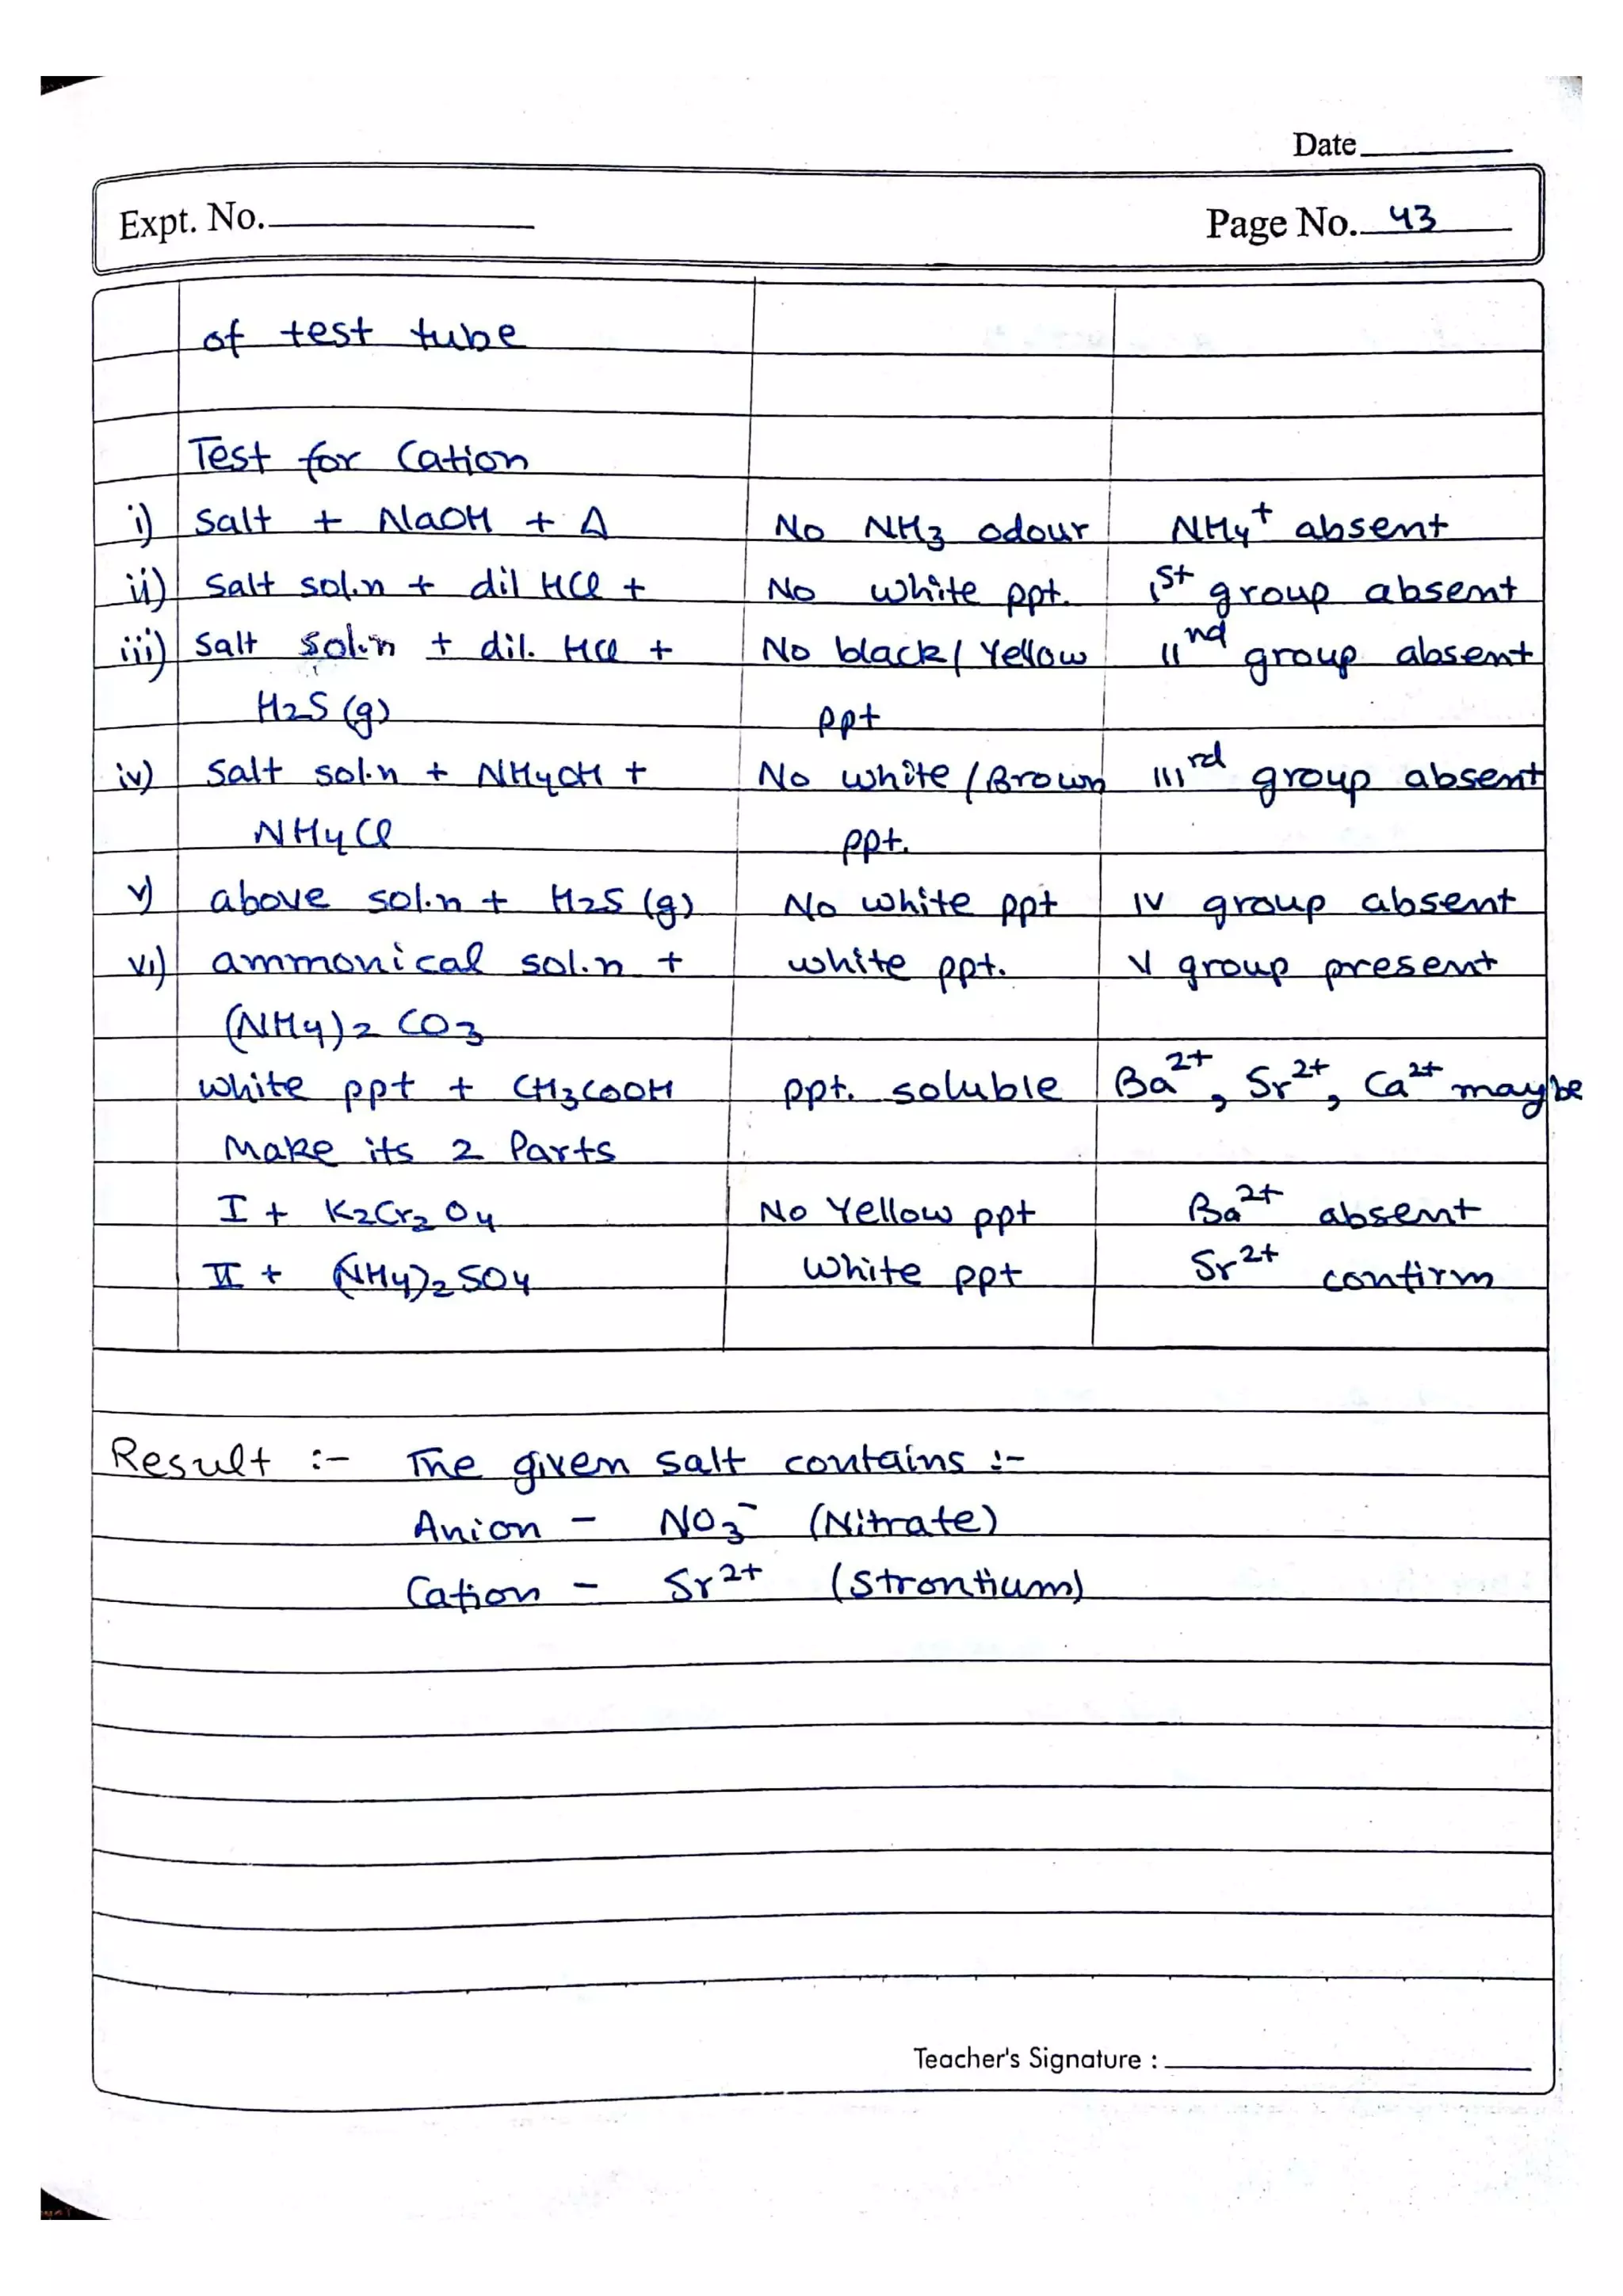 Date
Expt. No. Page No. 43
of test tube
Test for Cation
i) Salt + NaOH + Δ No NH3 odour NH4+ absent
ii) Salt sol.n + dil HCl + No white ppt. Ist group absent
iii) Salt sol.n + dil. HCl + No black/Yellow IInd group absent
H2S (g) ppt
iv) Salt sol.n + NH4OH + No white/Brown IIIrd group absent
NH4Cl ppt.
v) above sol.n + H2S (g) No white ppt IV group absent
vi) ammonical sol.n + white ppt. V group present
(NH4)2 CO3
white ppt + CH3COOH ppt. soluble Ba2+, Sr2+, Ca2+ maybe
Make its 2 Parts
I + K2Cr2O4 No Yellow ppt Ba2+ absent
II + (NH4)2SO4 White ppt Sr2+ confirm
Result :- The given salt contains :-
Anion - NO3- (Nitrate)
Cation - Sr2+ (Strontium)
Teacher's Signature :